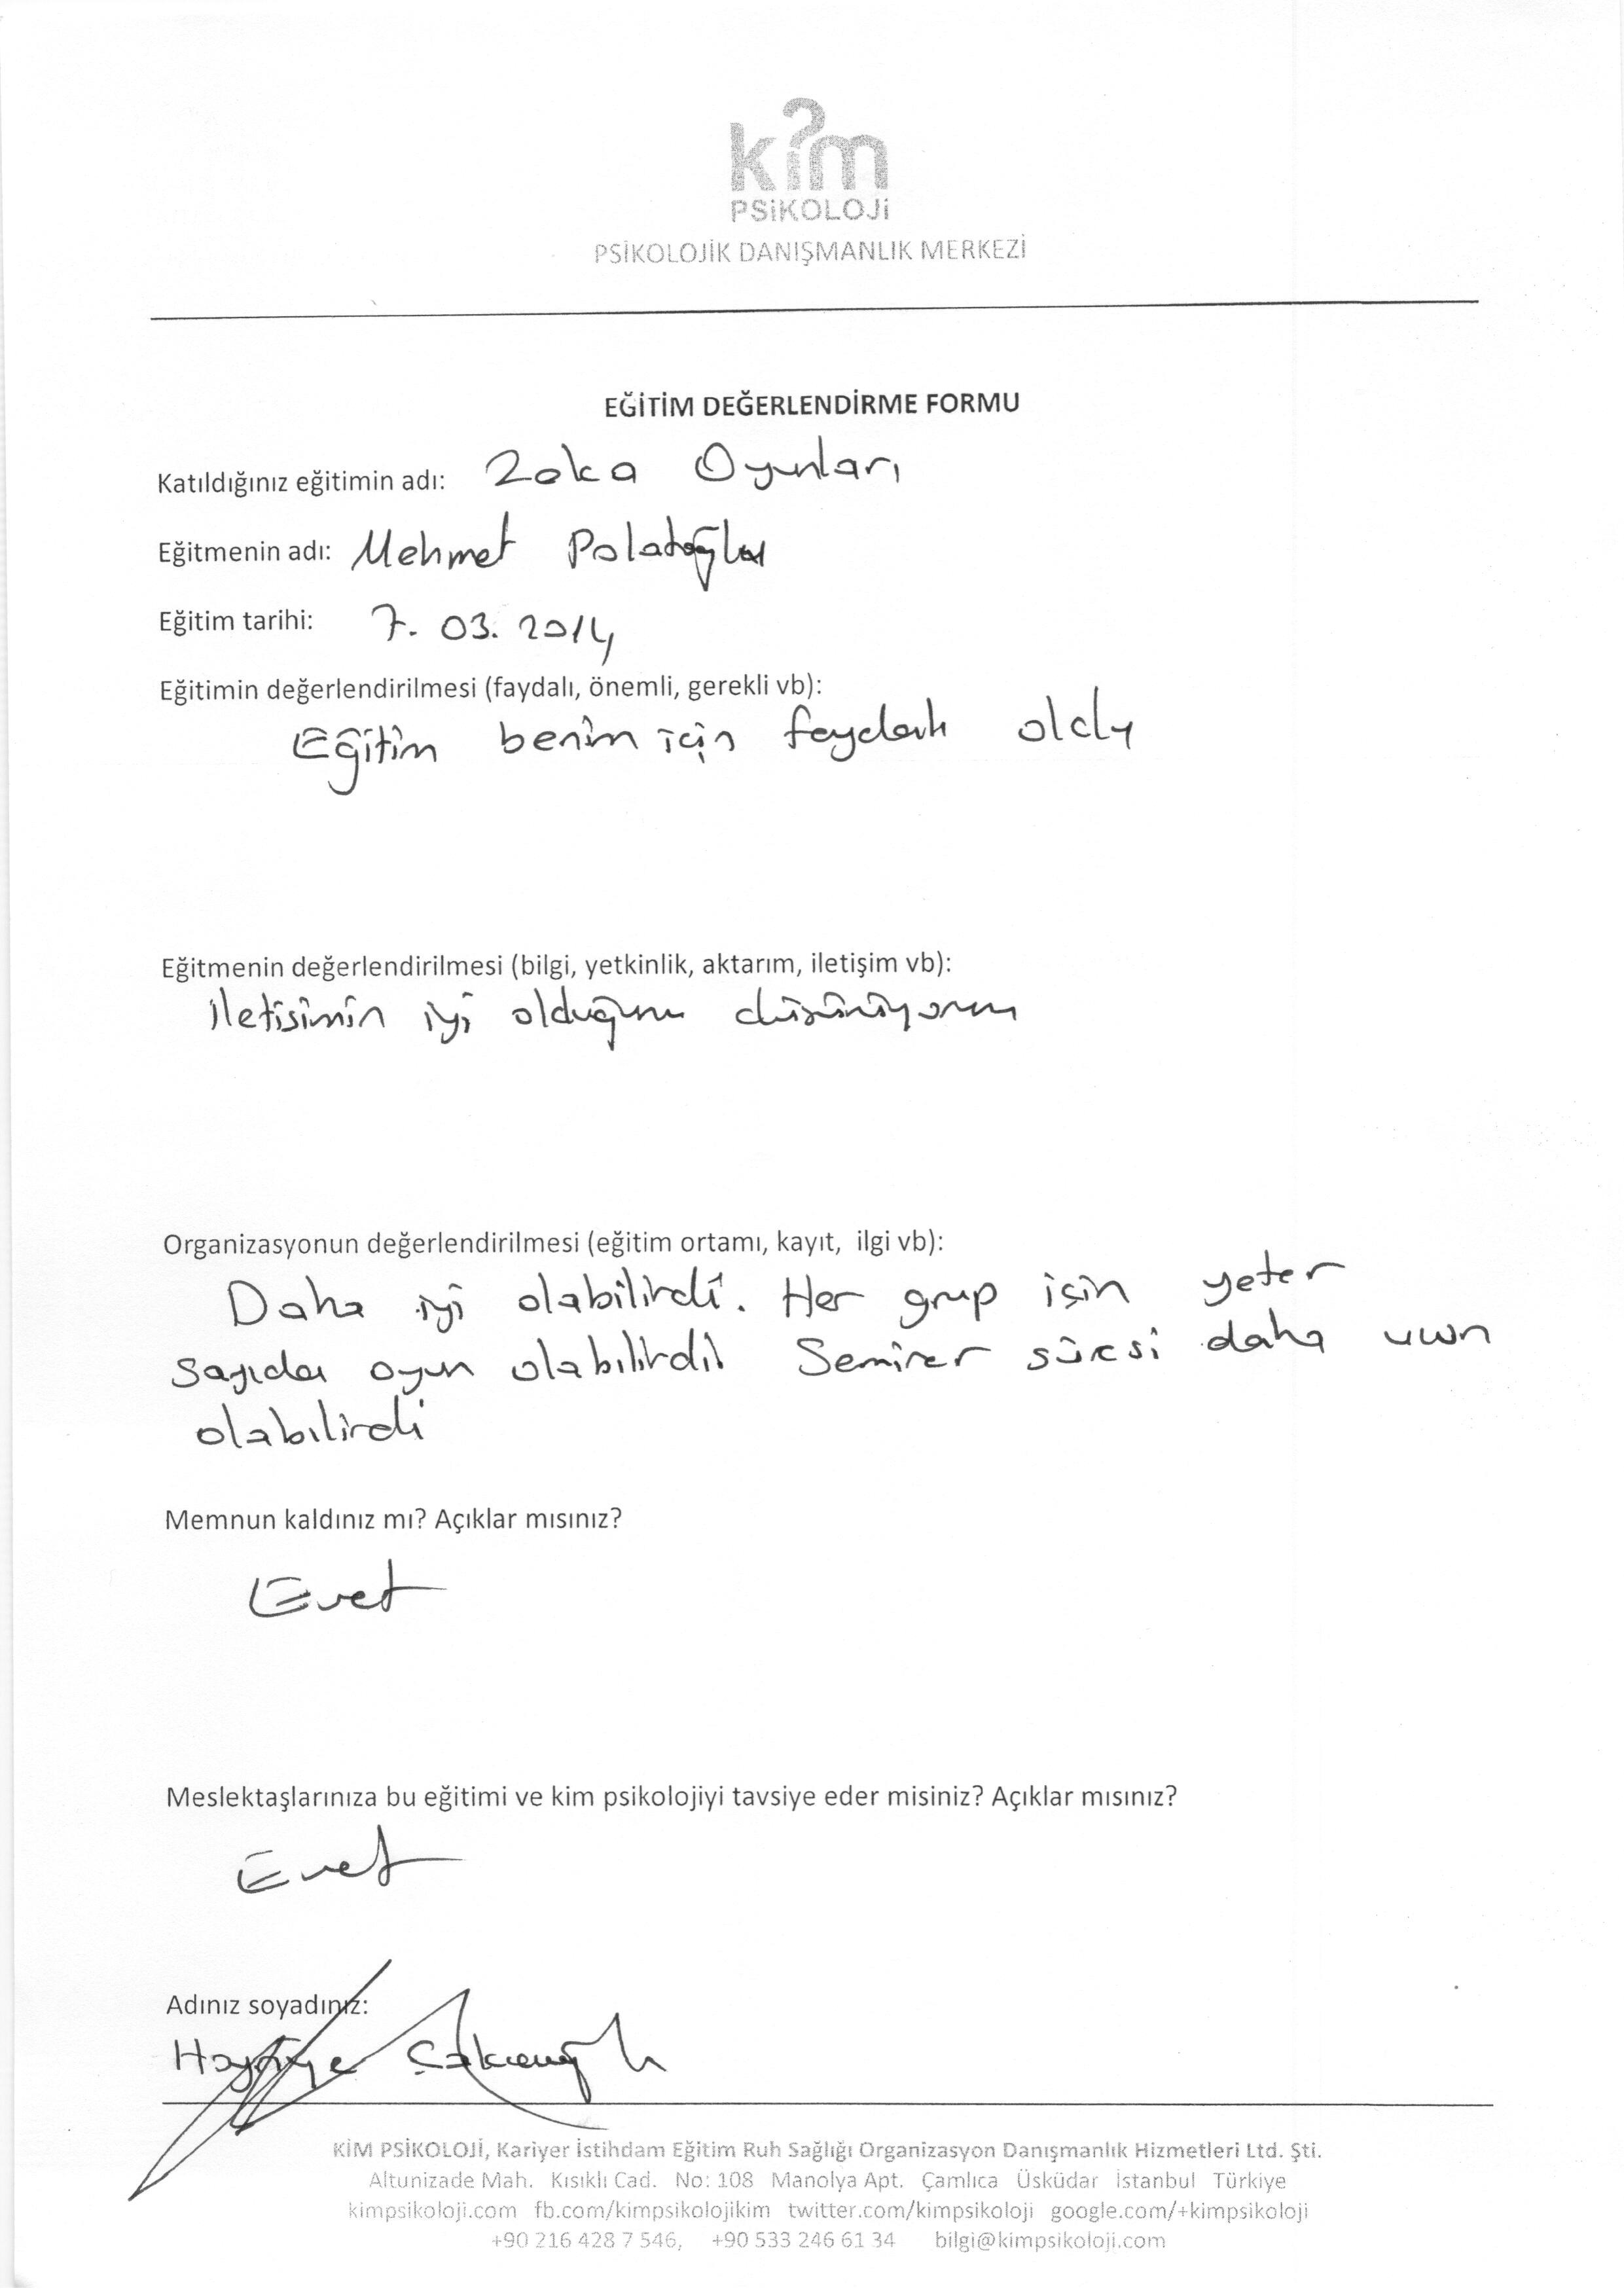 kim
PSİKOLOJİ
PSİKOLOJİK DANIŞMANLIK MERKEZİ
EĞİTİM DEĞERLENDİRME FORMU
Katıldığınız eğitimin adı: Zeka Oyunları
Eğitmenin adı: Mehmet Polatoğlu
Eğitim tarihi: 7.03.2014
Eğitimin değerlendirilmesi (faydalı, önemli, gerekli vb):
Eğitim benim için faydalı oldu
Eğitmenin değerlendirilmesi (bilgi, yetkinlik, aktarım, iletişim vb):
iletisimin iyi olduğunu düşünüyorum
Organizasyonun değerlendirilmesi (eğitim ortamı, kayıt, ilgi vb):
Daha iyi olabilirdi. Her grup için yeter
sayıda oyun olabilirdi. Seminer süresi daha uzun
olabilirdi
Memnun kaldınız mı? Açıklar mısınız?
Evet
Meslektaşlarınıza bu eğitimi ve kim psikolojiyi tavsiye eder misiniz? Açıklar mısınız?
Evet
Adınız soyadınız:
KİM PSİKOLOJİ, Kariyer İstihdam Eğitim Ruh Sağlığı Organizasyon Danışmanlık Hizmetleri Ltd. Şti.
Altunizade Mah. Kısıklı Cad. No: 108 Manolya Apt. Çamlıca Üsküdar İstanbul Türkiye
kimpsikoloji.com fb.com/kimpsikolojikim twitter.com/kimpsikoloji google.com/+kimpsikoloji
+90 216 428 7 546, +90 533 246 61 34 bilgi@kimpsikoloji.com